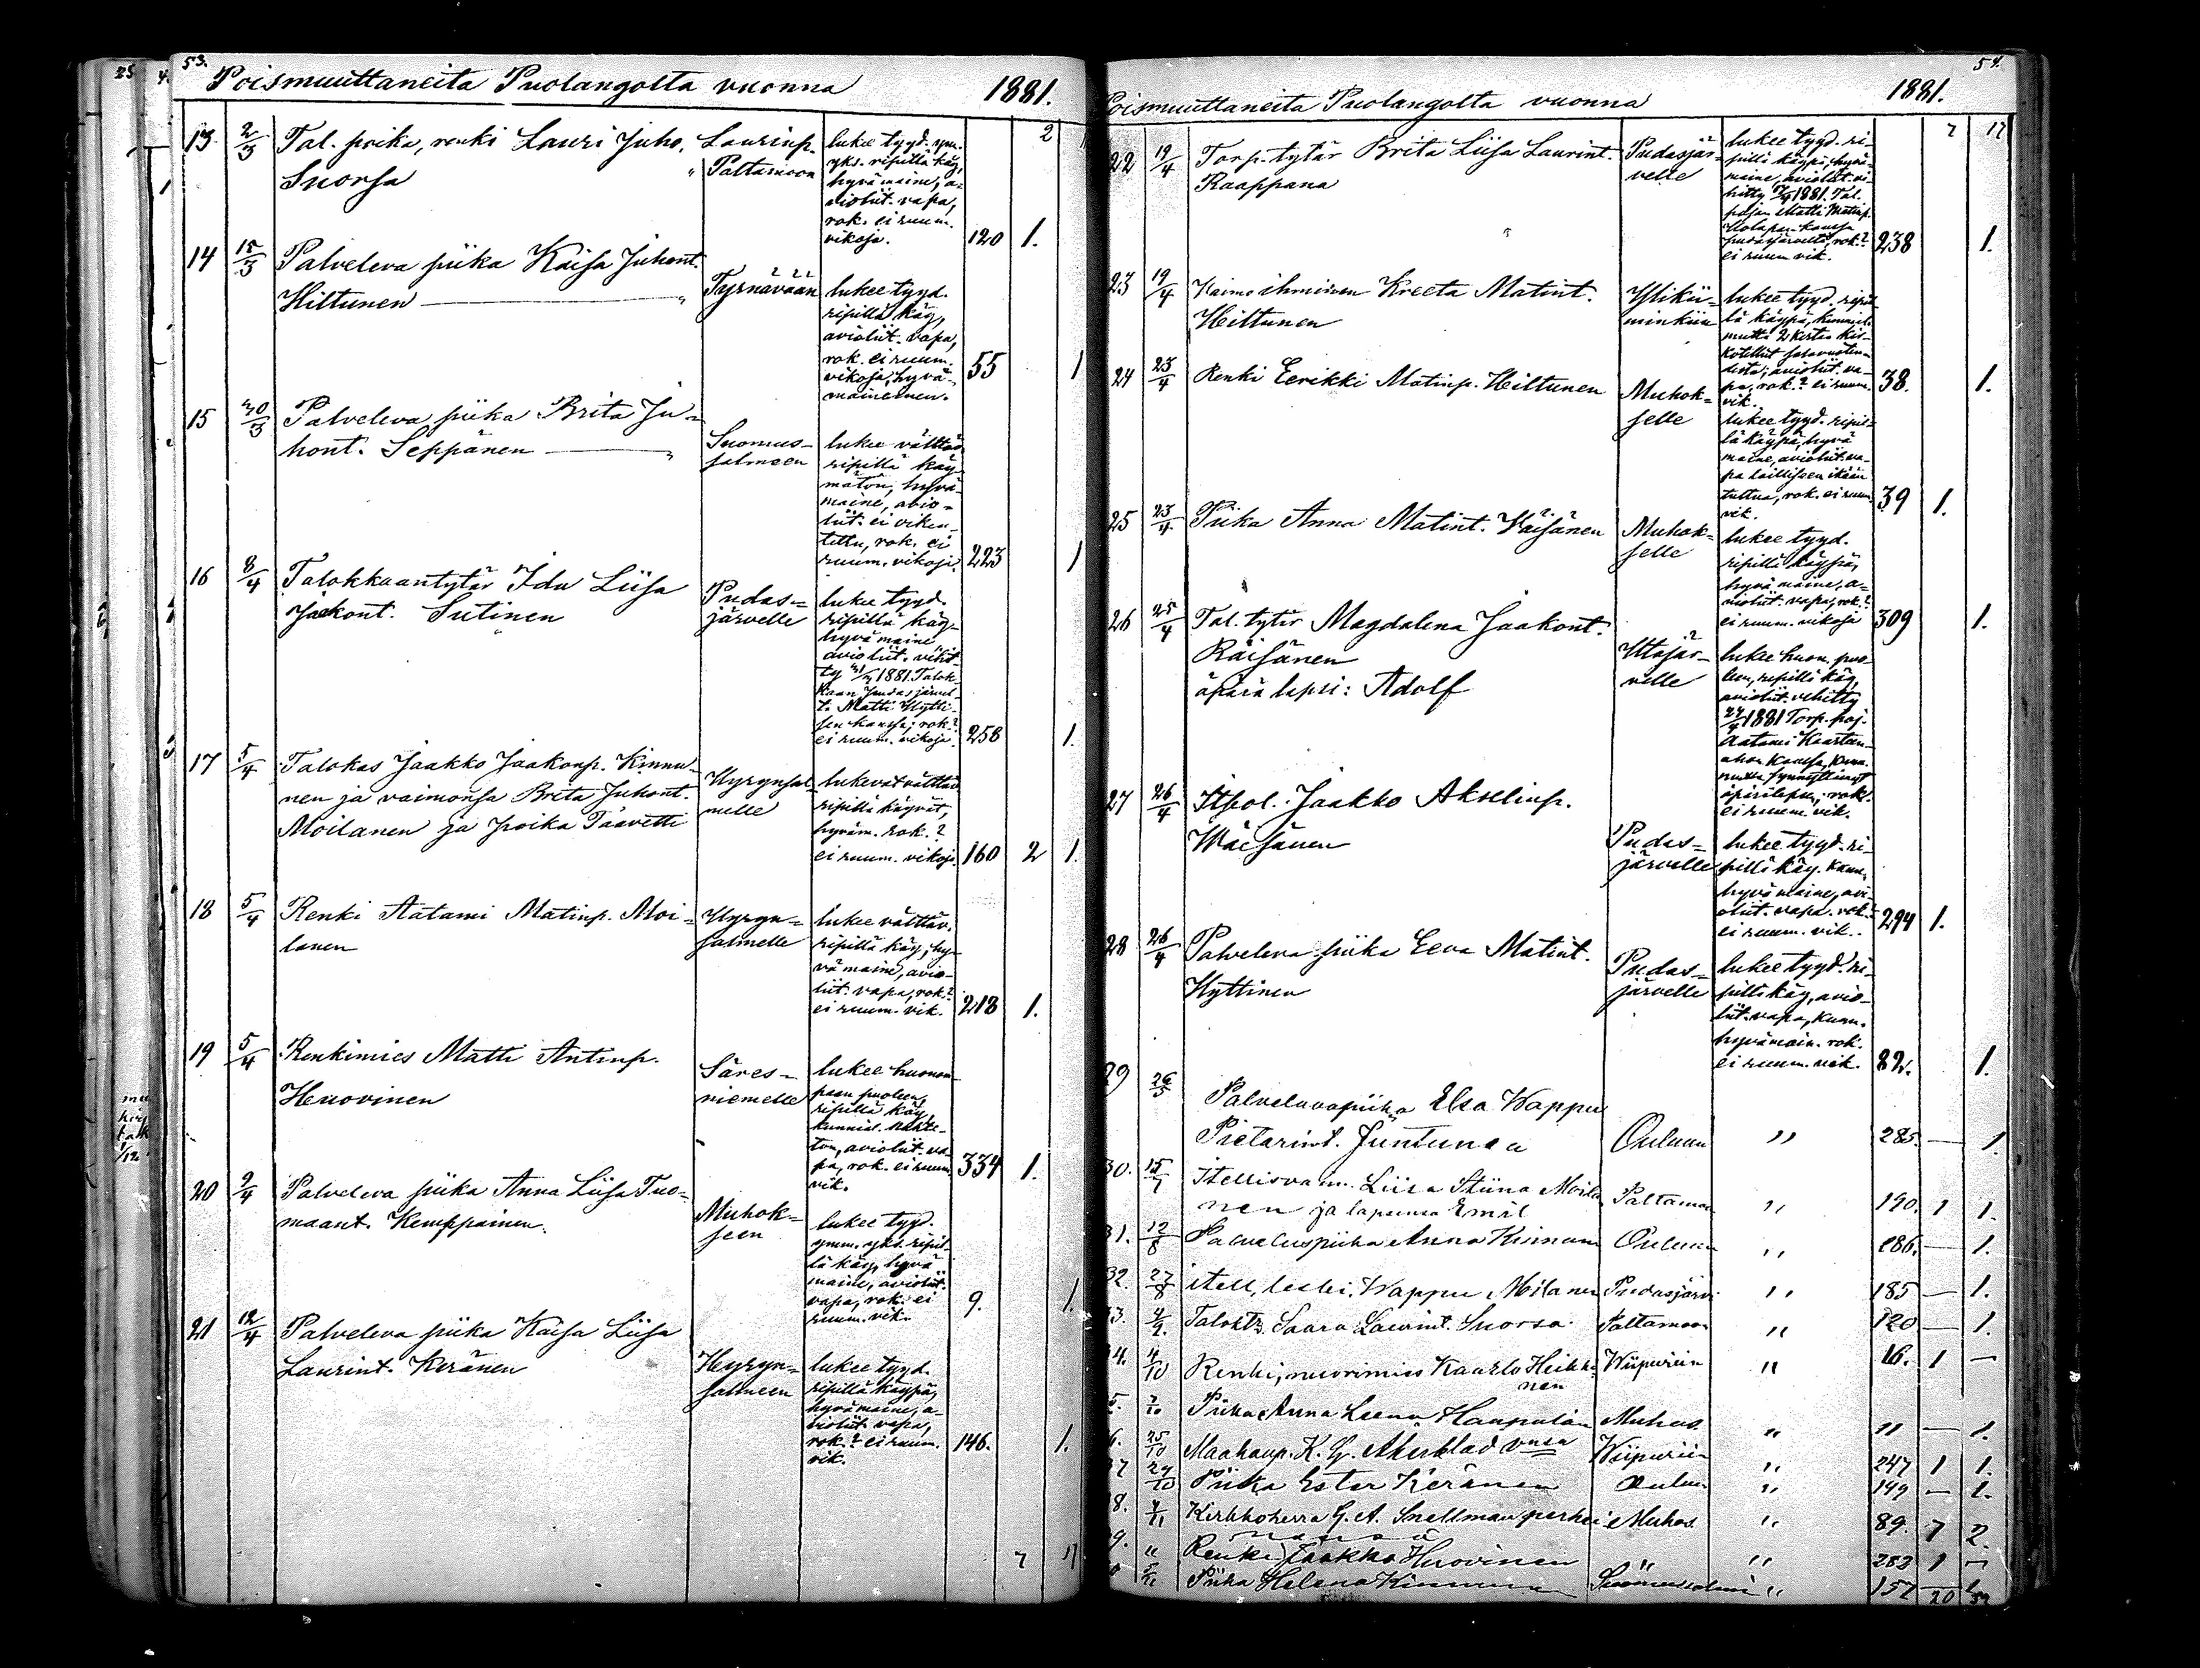 53.
Poismuuttaneita Puolangolta vuonna 1881.
2
13 2/3 Tal. poika, renki Lauri Juho, Laurinp.
Suorsa " Paltamoon
lukee tyyd. ym.
yks. ripillä käy,
hyvämaine, a-
violiit. vapa,
rok. ei ruum.
vikoja. 120 1.
14 15/3 Palveleva piika Kaisa Juhont.
Hiltunen " Tyrnävään
lukee tyyd.
ripillä käy,
avioliit. vapa,
rok. ei ruum.
vikoja, hyvä-
maineinen. 55 1
15 30/3 Palveleva piika Brita Ju-
hont. Seppänen " Suomus-
salmeen
lukee välttäv.
ripillä käy-
mätön, hyvä-
maine, avio-
liit. ei viken-
tetty, rok. ei
ruum. vikoja. 223 1
16 8/4 Talokkaantytär Ida Liisa
Jaakont. Sutinen
Pudas-
järvelle
lukee tyyd.
ripillä käy-
hyvä maine
avioliit. vihit-
ty 1881. Talok-
kaan Pudasjärvel-
t. Matti Hytti-
sen kanssa; rok.?
ei ruum. vikoja. 258 1.
17 5/4 Talokas Jaakko Jaakonp. Kinnu-
nen ja vaimonsa Brita Juhont.
Moilanen ja poika Taavetti
Hyrynsal-
melle
lukevat välttäv
ripillä käyvät,
hyväm. rok.?
ei ruum. vikoja. 160 2 1.
18 5/4 Renki Aatami Matinp. Moi-
lanen
Hyryn-
salmelle
lukee välttäv.
ripillä käy, hy-
vä maine, avio-
liit. vapa, rok.?
ei ruum. vik. 218 1.
19 5/4 Renkimies Matti Antinp.
Heikkinen
Säres-
niemelle
lukee huonom-
paan puoleen,
ripillä käy,
ton, avioliit. va-
pa, rok. ei ruum
vik. 334 1.
20 9/4 Palveleva piika Anna Liisa Tuo-
maant. Kemppainen.
Muhok-
seen
lukee tyyd.
ymm. yks. ripil-
lä käy, hyvä
maine, avioliit.
vapa, rok. ei
ruum. vik. 9. 1.
21 12/4 Palveleva piika Kaisa Liisa
Laurint. Keränen
Hyryn-
salmeen
lukee tyyd.
ripillä käypä,
hyvämaine, a-
violiit. vapa,
rok.? ei ruum.
vik. 146. 1.
7 17
54.
Poismuuttaneita Puolangolta vuonna 1881.
7 17
22 19/4 Torp. tytär Brita Liisa Laurint.
Raappana
Pudasjär-
velle
lukee tyyd. ri-
pillä käypä, hyvä-
maine, avioliit. vi-
hitty 1881. Tal.
pojan Matti Matinp.
kanssa
Pudasjärveltä, rok.?
ei ruum vik. 238 1.
23 19/4 ihminen Kreeta Matint.
Hiltunen
Ylikii-
minkiin
lukee tyyd. ripil-
lä käypä,
mutta 2 kertaa
avioliit. va-
pa, rok.? ei ruum.
vik. 38. 1.
24 23/4 Renki Eerikki Matinp. Hiltunen
Muhok-
selle
lukee tyyd. ripil-
lä käypä, hyvä
maine, avioliit. va-
pa laillisen ikään
tultua, rok. ei ruum
vik. 39 1.
25 23/4 Piika Anna Matint. Väisänen
Muhok-
selle
lukee tyyd.
ripillä käypä,
hyvä maine, a-
violiit. vapa, rok.?
ei ruum. vikoja 309 1.
26 25/4 Tal. tytär Magdalena Jaakont.
Räisänen
äpärä lapsi: Adolf
Utajär-
velle
lukee huon. puo-
leen, ripillä käy,
avioliit. vihitty
24/4 1881 Torp. poj.
Aatami
kanssa,
synnyttänyt
äpärälapsen, rok.
ei ruum. vik.
27 26/4 Itsol. Jaakko Akselinp.
Wäisänen
Pudas-
järvelle
lukee tyyd. ri-
pillä käy. kunn.
hyvä maine, avi-
oliit. vapa. rok.
ei ruum. vik. 294 1.
28 26/4 Palveleva piika Eeva Matint.
Hyttinen
Pudas-
järvelle
lukee tyyd. ri-
pillä käy, avio-
liit. vapa, kunn.
hyvämain. rok.
ei ruum. vik. 82. 1.
29 26/5 Palvelevapiika Elsa Wappu
Pietarint. Juntunen Ouluun " 285. — 1.
30. 15/7 Itellisvaim. Liisa Stiina Moila
nen ja lapsensa Emil Paltamo " 190. 1 1.
31. 12/8 Palveluspiika Anna Kinnunen Ouluun " 286. — 1.
32. 27/8 itell. leski. Wappu Moilanen Pudasjärvi " 185 — 1.
3. 4/9. Talokt. Saara Laurint. Suorsa. Paltamoon " 120 — 1.
4. 4/10 Renki, nuorimies Kaarlo Heikki-
nen Wiipuriin " 16. 1 —
5. Piika Anna Leena Muhos " 11 — 1.
6. 25/10 Maakaup. K. G. Åkerblad Wiipuriin " 247 1 1.
7 27/10 Piika Ester Keränen Ouluu " 199 — 1.
8. Kirkkoherra G. A. Snellman perhei Muhos " 89. 7 2.
9. " Renki Jaakko Huovinen " " 283 1 —
Piika Helena Kinnunen Suomussalmi " 157 — 1
20 32